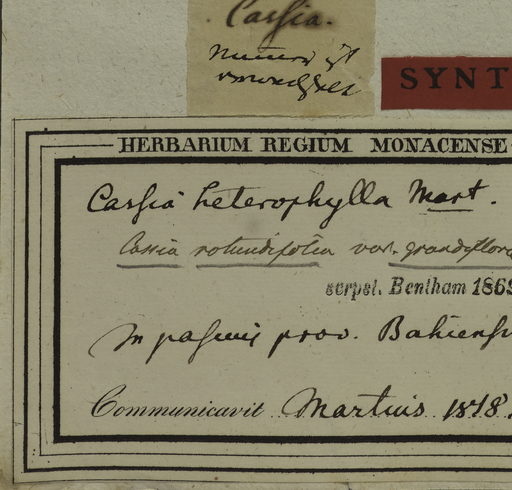 Cassia.
SYNT
HERBARIUM REGIUM MONACENSE
Cassia heterophylla Mart.
Cassia rotundifolia var. grandiflora
scrpst. Bentham 1869
In pascuis prov. Bahiensis
Communicavit Martius 1818.